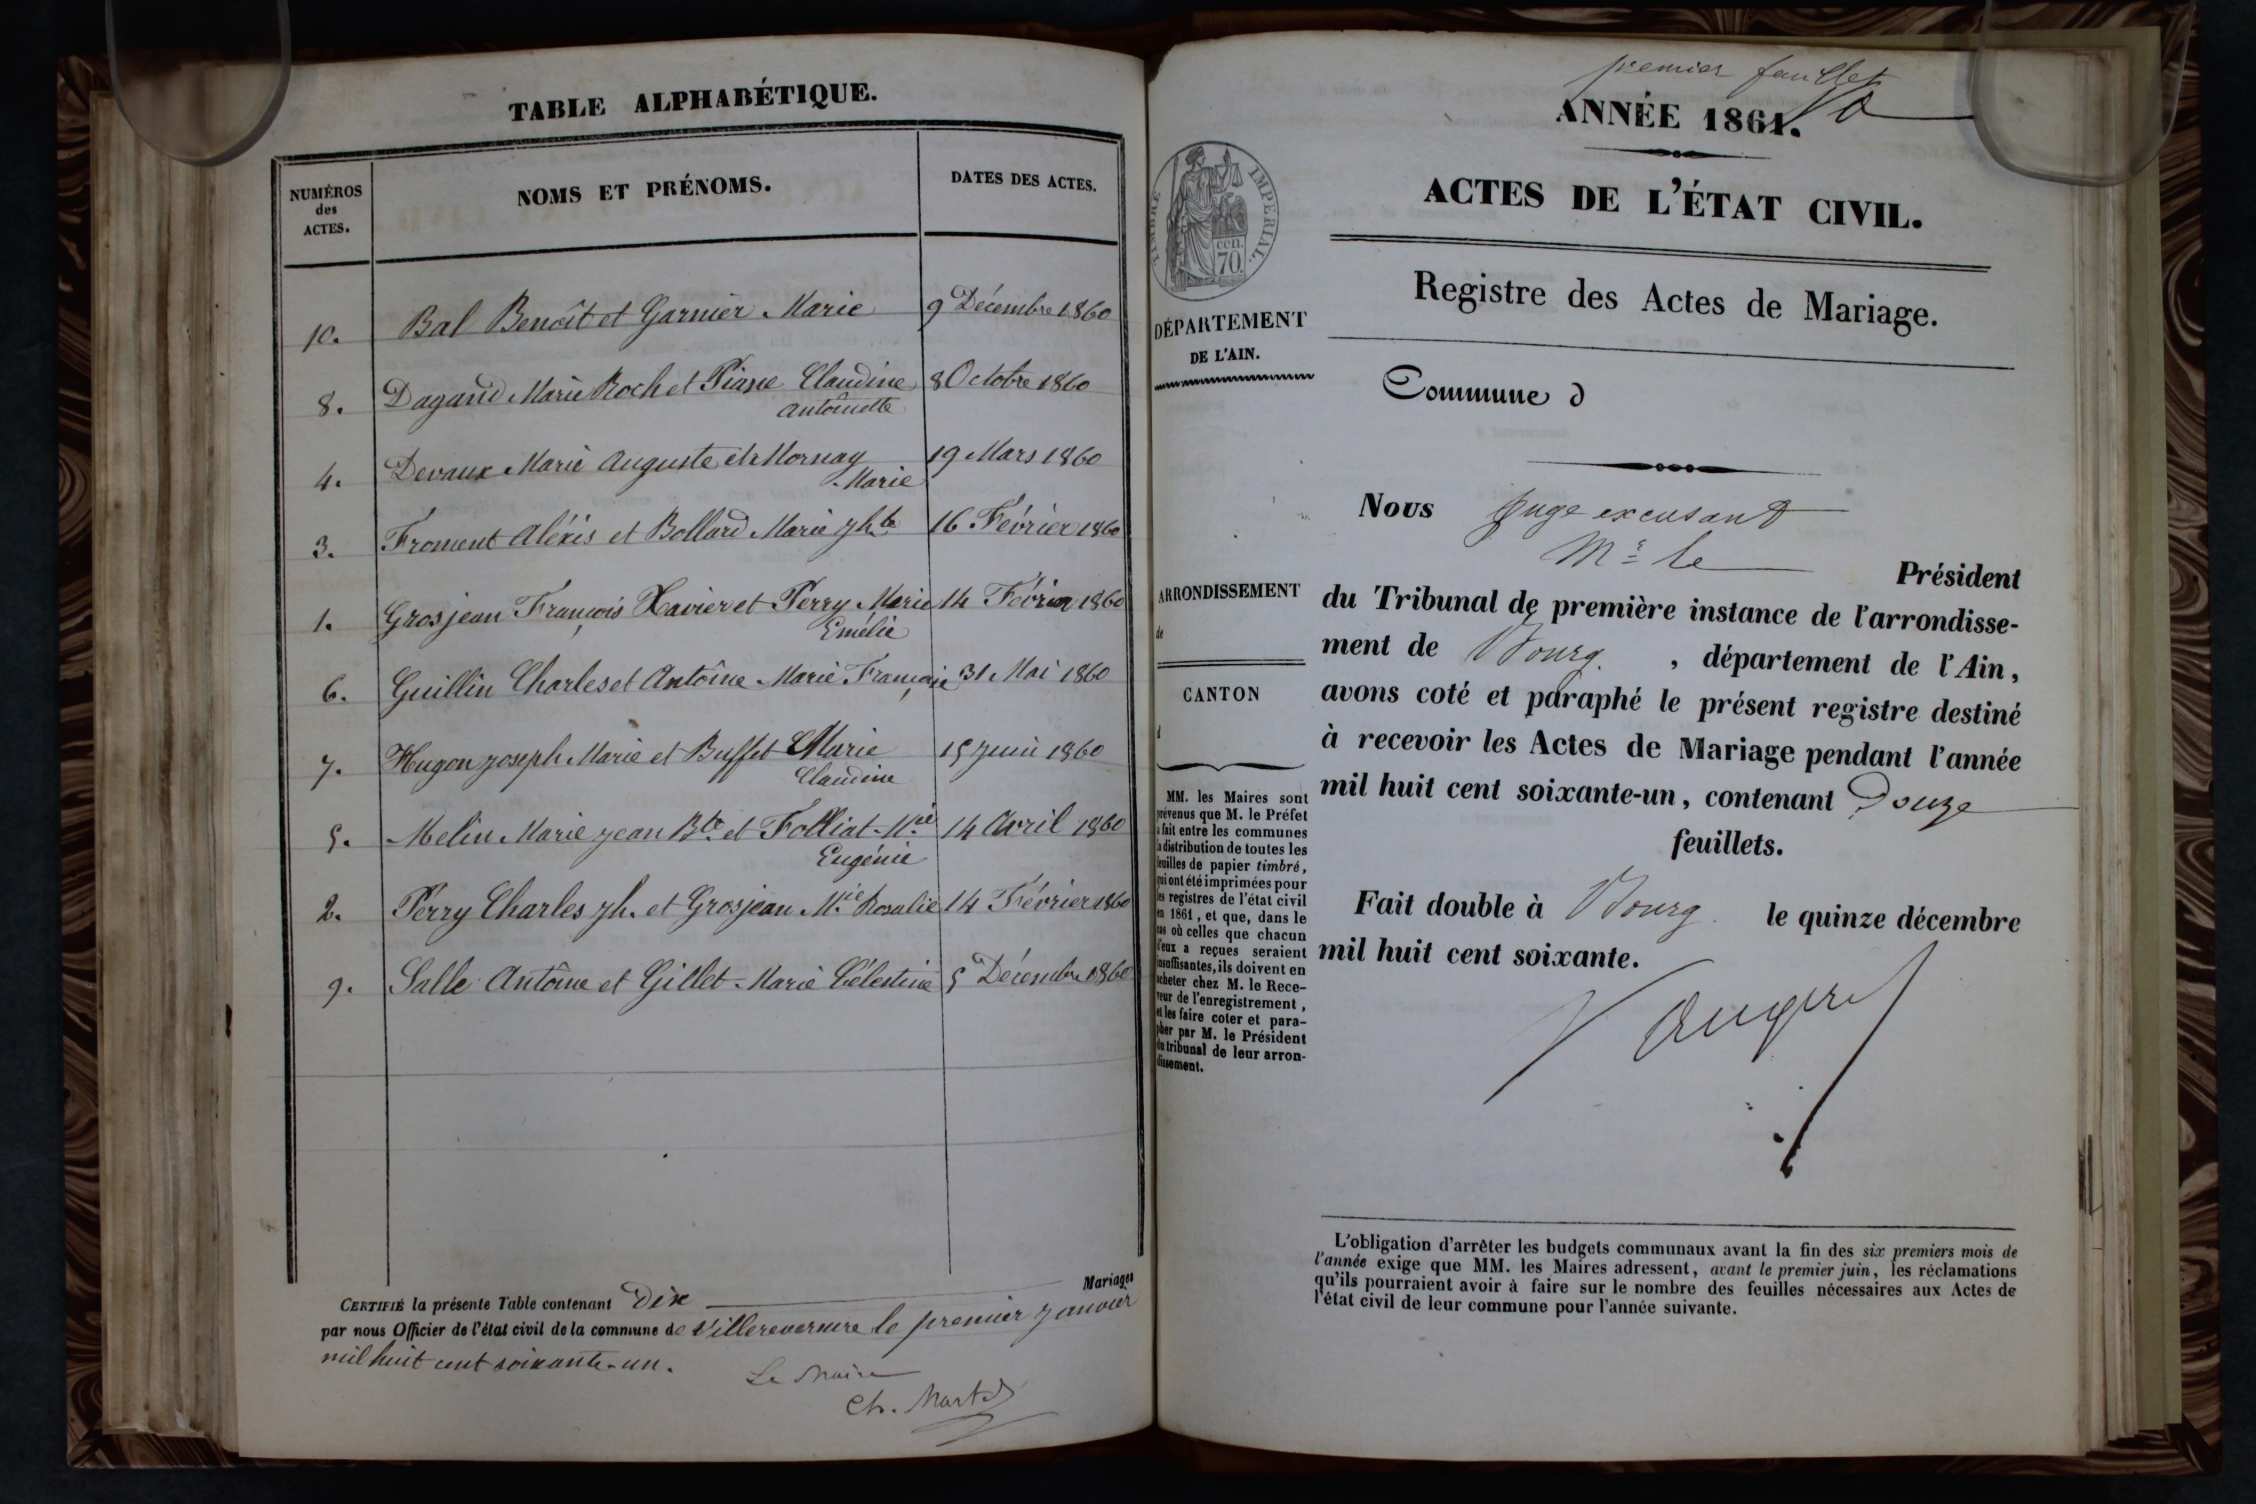 TABLE ALPHABÉTIQUE.
NUMÉROS
des
ACTES.
NOMS ET PRÉNOMS.
DATES DES ACTES.
10. Bal Benoît et Garnier Marie 9 Décembre 1860
8. Dagand Marie Roch et Claudine 8 Octobre 1860
Antoinette
4. Devaux Marie Auguste et Mornay 19 Mars 1860
Marie
3. Froment Aléxis et Bollard Marie jh.te 16 Février 1860
1. Grosjean François Xavier et Perry Marie 14 Février 1860
Emélie
6. Guillin Charles et Antoine Marie Françoise 31 Mai 1860
7. Hugon joseph Marie et Buffet Marie 15 juin 1860
Claudine
5. Melin Marie jean Bte. et Folliat M.ie 14 Avril 1860
Eugénie
2. Perry Charles jh. et Grosjean M.ie Rosalie 14 Février 1860
9. Salle Antoine et Gillet Marie Célestine 5 Décembre 1860
Mariages
CERTIFIÉ la présente Table contenant Dix
par nous Officier de l'état civil de la commune de Villereversure le premier janvier
mil huit cent soixante-un.
Le Maire
Ch.
premier feuillet
ANNÉE 1861.
ACTES DE L'ÉTAT CIVIL.
Registre des Actes de Mariage.
TIMBRE IMPÉRIAL.
70 cen.
DÉPARTEMENT
DE L'AIN.
Commune d
Nous juge excusant
Mr le
Président
du Tribunal de première instance de l'arrondisse-
ment de Bourg, département de l'Ain,
avons coté et paraphé le présent registre destiné
à recevoir les Actes de Mariage pendant l'année
mil huit cent soixante-un, contenant Douze
feuillets.
Fait double à Bourg le quinze décembre
mil huit cent soixante.
ARRONDISSEMENT
de
CANTON
d
MM. les Maires sont
prévenus que M. le Préfet
a fait entre les communes
la distribution de toutes les
feuilles de papier timbré,
qui ont été imprimées pour
les registres de l'état civil
en 1861, et que, dans le
cas où celles que chacun
d'eux a reçues seraient
insuffisantes, ils doivent en
acheter chez M. le Rece-
veur de l'enregistrement,
et les faire coter et para-
pher par M. le Président
du tribunal de leur arron-
dissement.
L'obligation d'arrêter les budgets communaux avant la fin des six premiers mois de
l'année exige que MM. les Maires adressent, avant le premier juin, les réclamations
qu'ils pourraient avoir à faire sur le nombre des feuilles nécessaires aux Actes de
l'état civil de leur commune pour l'année suivante.